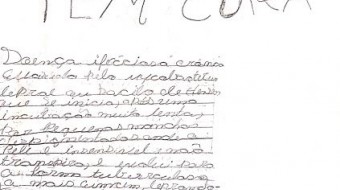 TEM CURA
Doença infecciosa crônica
causada pelo mycobacterium
leprae ou bacilo de Hansen
que se inicia, após uma
incubação muito lenta,
por pequenas manchas
onde a
pele é insensível e não
transpira, e evolui para
a forma tuberculosa,
a mais comum,